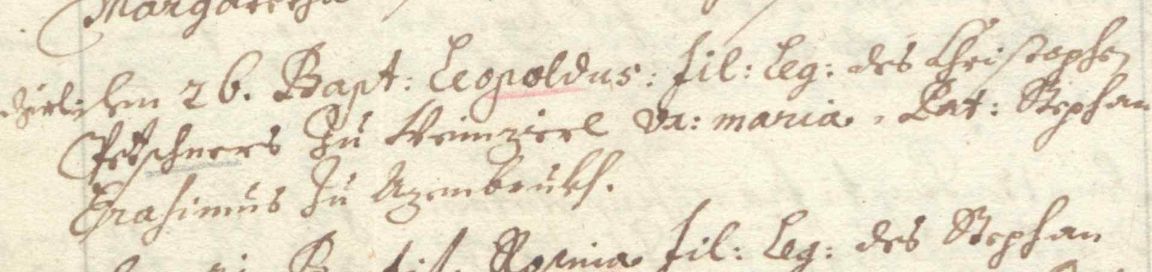 Margaretha
den 26. Bapt: Leopoldus: fil: Leg: des Christophen
Petschners zu Weinzierl Ux: maria. Pat: Stephan
Erasimus zu Azenbrukh.
Rosina fil: Leg: des Stephan